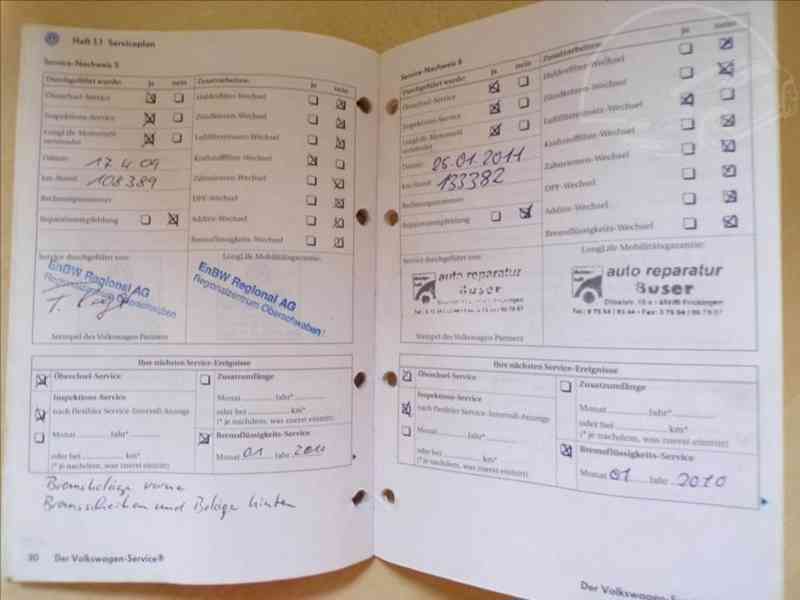 Heft 1.1 Serviceplan
Service-Nachweis 5
Durchgeführt wurde: ja nein Zusatzarbeiten: ja nein
Ölwechsel-Service
Inspektions-Service
LongLife-Motorenöl verwendet
Datum: 17 4 09
km-Stand: 108389
Rechnungsnummer
Reparaturempfehlung
Staubfilter-Wechsel
Zündkerzen-Wechsel
Luftfiltereinsatz-Wechsel
Kraftstofffilter-Wechsel
Zahnriemen-Wechsel
DPF-Wechsel
Additiv-Wechsel
Bremsflüssigkeits-Wechsel
Service durchgeführt von:
LongLife Mobilitätsgarantie:
EnBW Regional AG
EnBW Regional AG
Regionalzentrum Oberschwaben
Stempel des Volkswagen Partners
Ihre nächsten Service-Ereignisse
Ölwechsel-Service
Inspektions-Service
nach flexibler Service-Intervall-Anzeige
Monat Jahr*
oder bei km*
(* je nachdem, was zuerst eintritt)
Zusatzumfänge
Monat Jahr*
oder bei km*
(* je nachdem, was zuerst eintritt)
Bremsflüssigkeits-Service
Monat 01 Jahr 2010
Bremsbeläge vorne
Bremsscheiben und Beläge hinten
30 Der Volkswagen-Service®
Service-Nachweis 6
Durchgeführt wurde: ja nein Zusatzarbeiten: ja nein
Ölwechsel-Service
Inspektions-Service
LongLife-Motorenöl verwendet
Datum: 25.01.2011
km-Stand: 133382
Rechnungsnummer
Reparaturempfehlung
Staubfilter-Wechsel
Zündkerzen-Wechsel
Luftfiltereinsatz-Wechsel
Kraftstofffilter-Wechsel
Zahnriemen-Wechsel
DPF-Wechsel
Additiv-Wechsel
Bremsflüssigkeits-Wechsel
Service durchgeführt von:
LongLife Mobilitätsgarantie:
auto reparatur
Buser
auto reparatur
Buser
Stempel des Volkswagen Partners
Ihre nächsten Service-Ereignisse
Ölwechsel-Service
Inspektions-Service
nach flexibler Service-Intervall-Anzeige
Monat Jahr*
oder bei km*
(* je nachdem, was zuerst eintritt)
Zusatzumfänge
Monat Jahr*
oder bei km*
(* je nachdem, was zuerst eintritt)
Bremsflüssigkeits-Service
Monat 01 Jahr 2010
Der Volkswagen-Service